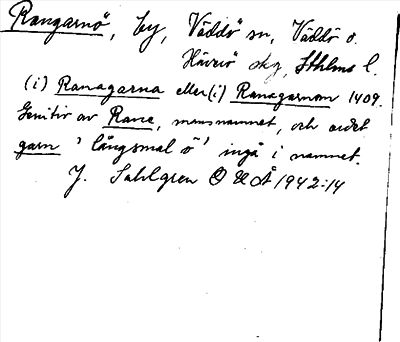 Rangarnö, by, Väddö sn, Väddö o.
Häverö skg, Sthlms l.
(i) Ranagarna eller (i) Ranagarnom 1409.
Genitiv av Rane, mansnamnet, och ordet
garn 'långsmal ö' ingå i namnet.
J. Sahlgren O U Å 1942:14